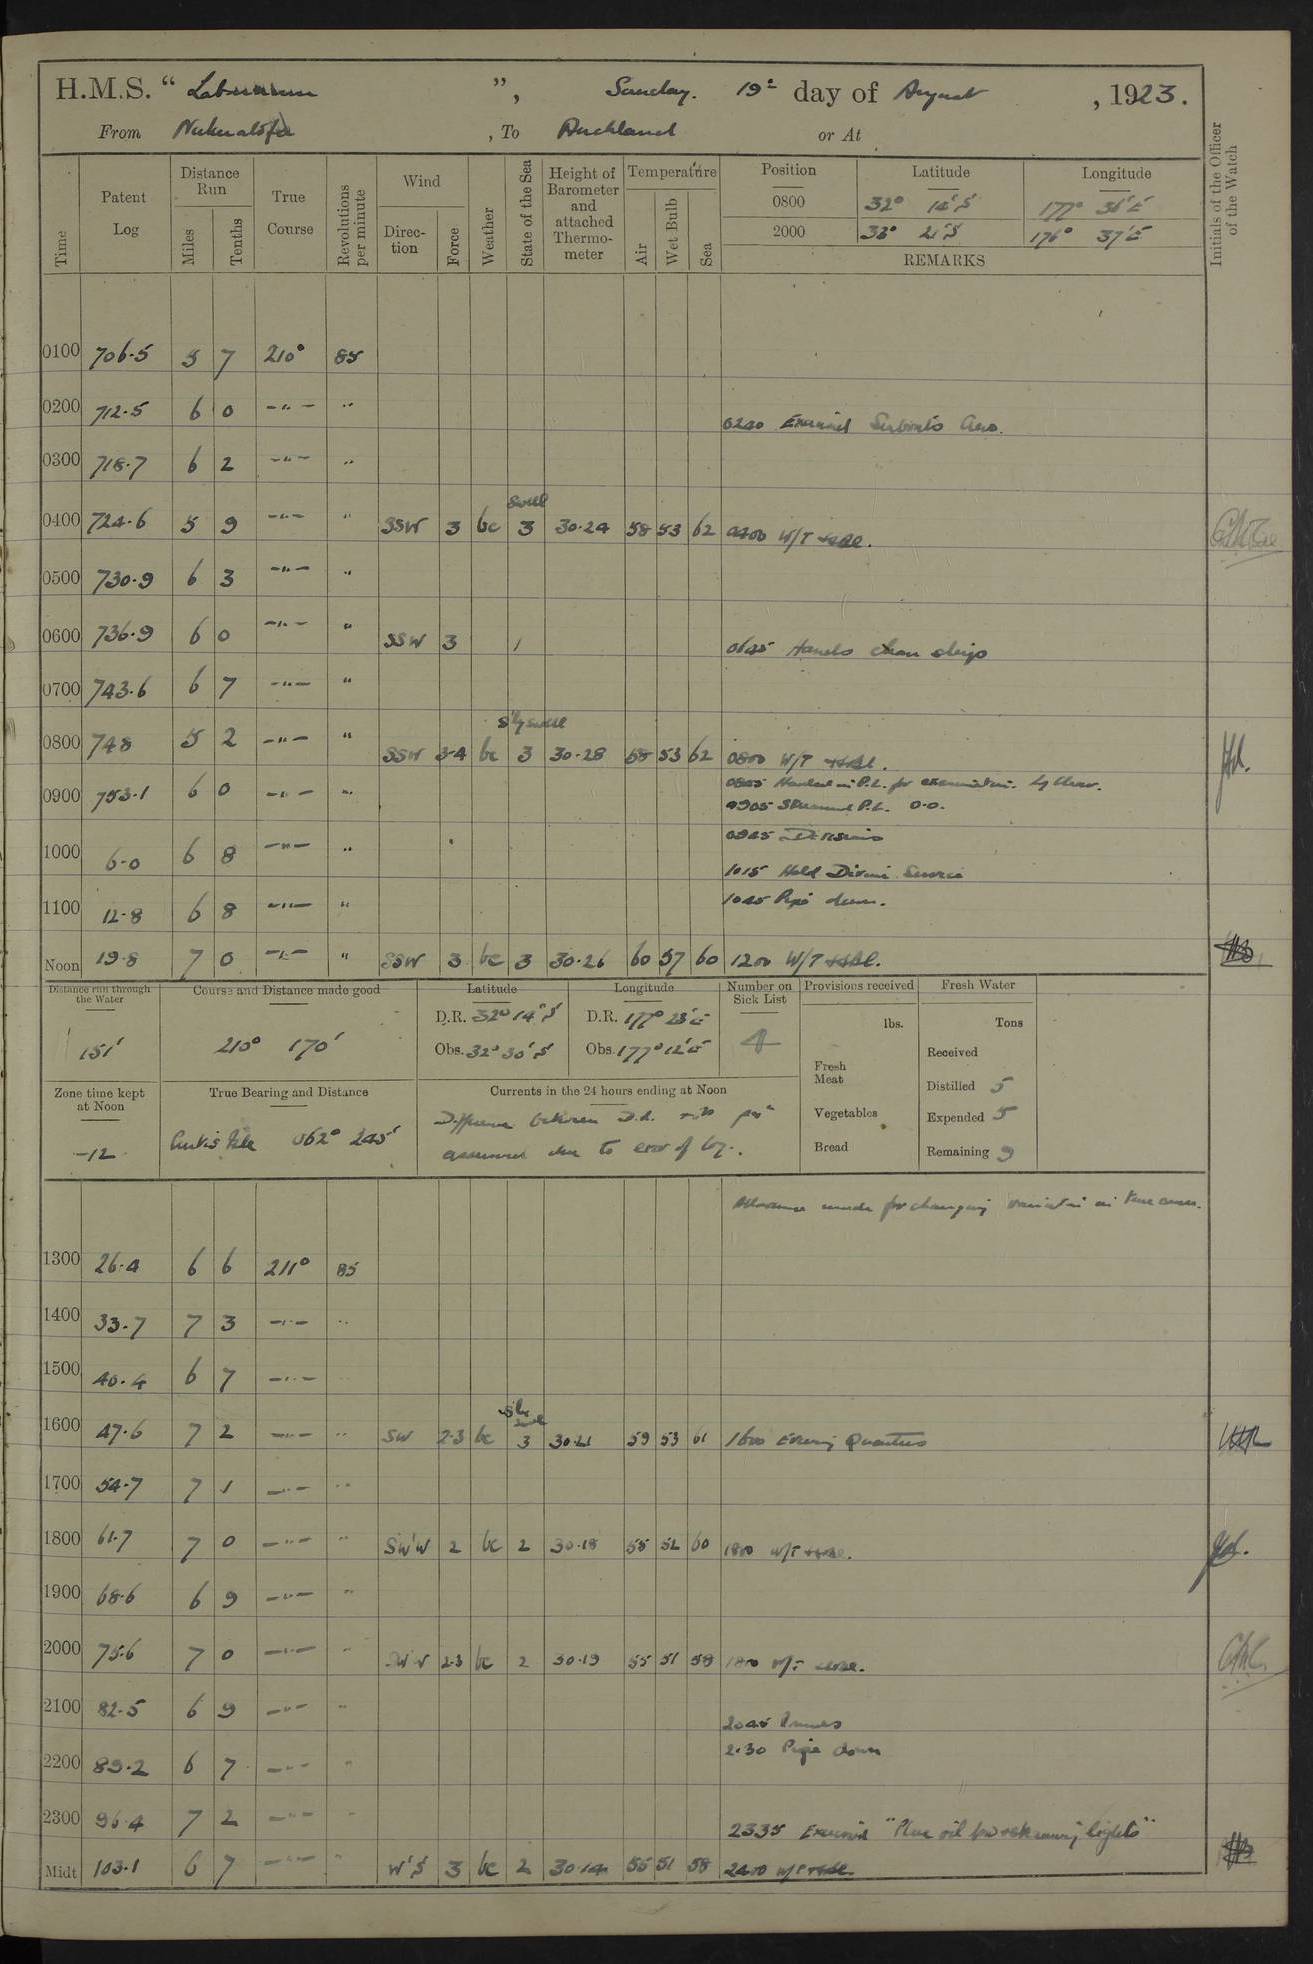 H.M.S. “Laburnum”, Sunday. 19th day of August, 1923.
From Nukualofa, To Auckland or At
Time Patent Log Distance Run Miles Tenths True Course Revolutions per minute Wind Direction Force Weather State of the Sea Height of Barometer and attached Thermometer Temperature Air Wet Bulb Sea Position Latitude Longitude Initials of the Officer of the Watch
0800 32° 14'S 177° 36'E
2000 33° 21'S 176° 37'E
REMARKS
0100 706.5 5 7 210° 85
0200 712.5 6 0 —"— "
0240 Exercised Seaboat's Crew.
0300 718.7 6 2 —"— "
0400 724.6 5 9 —"— " SSW 3 bc swell 3 30.24 58 53 62 0400 W/T
0500 730.9 6 3 —"— "
0600 736.9 6 0 —"— " SSW 3 1 0645 Hands clean ship
0700 743.6 6 7 —"— "
0800 748 5 2 —"— " SSW 3-4 bc S'ly swell 3 30.28 58 53 62 0800 W/T
0900 753.1 6 0 —"— " Hauled in P.L. for examination.
0905 Streamed P.L. 0.0.
0945 Divisions
1000 6.0 6 8 —"— "
1015 Held Divine Service
1100 12.8 6 8 —"— " 1045 Pipe down.
Noon 19.8 7 0 —"— " SSW 3 bc 3 30.26 60 57 60 1200 W/T
Distance run through the Water Course and Distance made good Latitude Longitude Number on Sick List Provisions received Fresh Water
151' 210° 170' D.R. 32° 14'S D.R. 177° 23'E 4 lbs. Tons
Obs. 32° 30'S Obs. 177° 12'E Fresh Meat Received
Zone time kept at Noon True Bearing and Distance Currents in the 24 hours ending at Noon Distilled 5
-12 Curtis Isle 062° 245' Difference between D.R. posn Vegetables Expended 5
assumed due to error of log. Bread Remaining 9
Allowance made for changing variation in true course.
1300 26.4 6 6 211° 85
1400 33.7 7 3 —"— "
1500 40.4 6 7 —"— "
1600 47.6 7 2 —"— " SW 2.3 bc swell 3 30.21 59 53 61 1600 Evening Quarters
1700 54.7 7 1 —"— "
1800 61.7 7 0 —"— " SW'W 2 bc 2 30.18 55 52 60 1800 W/T
1900 68.6 6 9 —"— "
2000 75.6 7 0 —"— " 2.3 bc 2 30.19 55 51 58 1800 W/T
2100 82.5 6 9 —"— "
2045 Rounds
2.30 Pipe down
2200 89.2 6 7 —"— "
2300 96.4 7 2 —"— "
2335 Exercised "Place oil bow steaming lights"
Midt 103.1 6 7 —"— " W'S 3 bc 2 30.14 55 51 58 2400 W/T